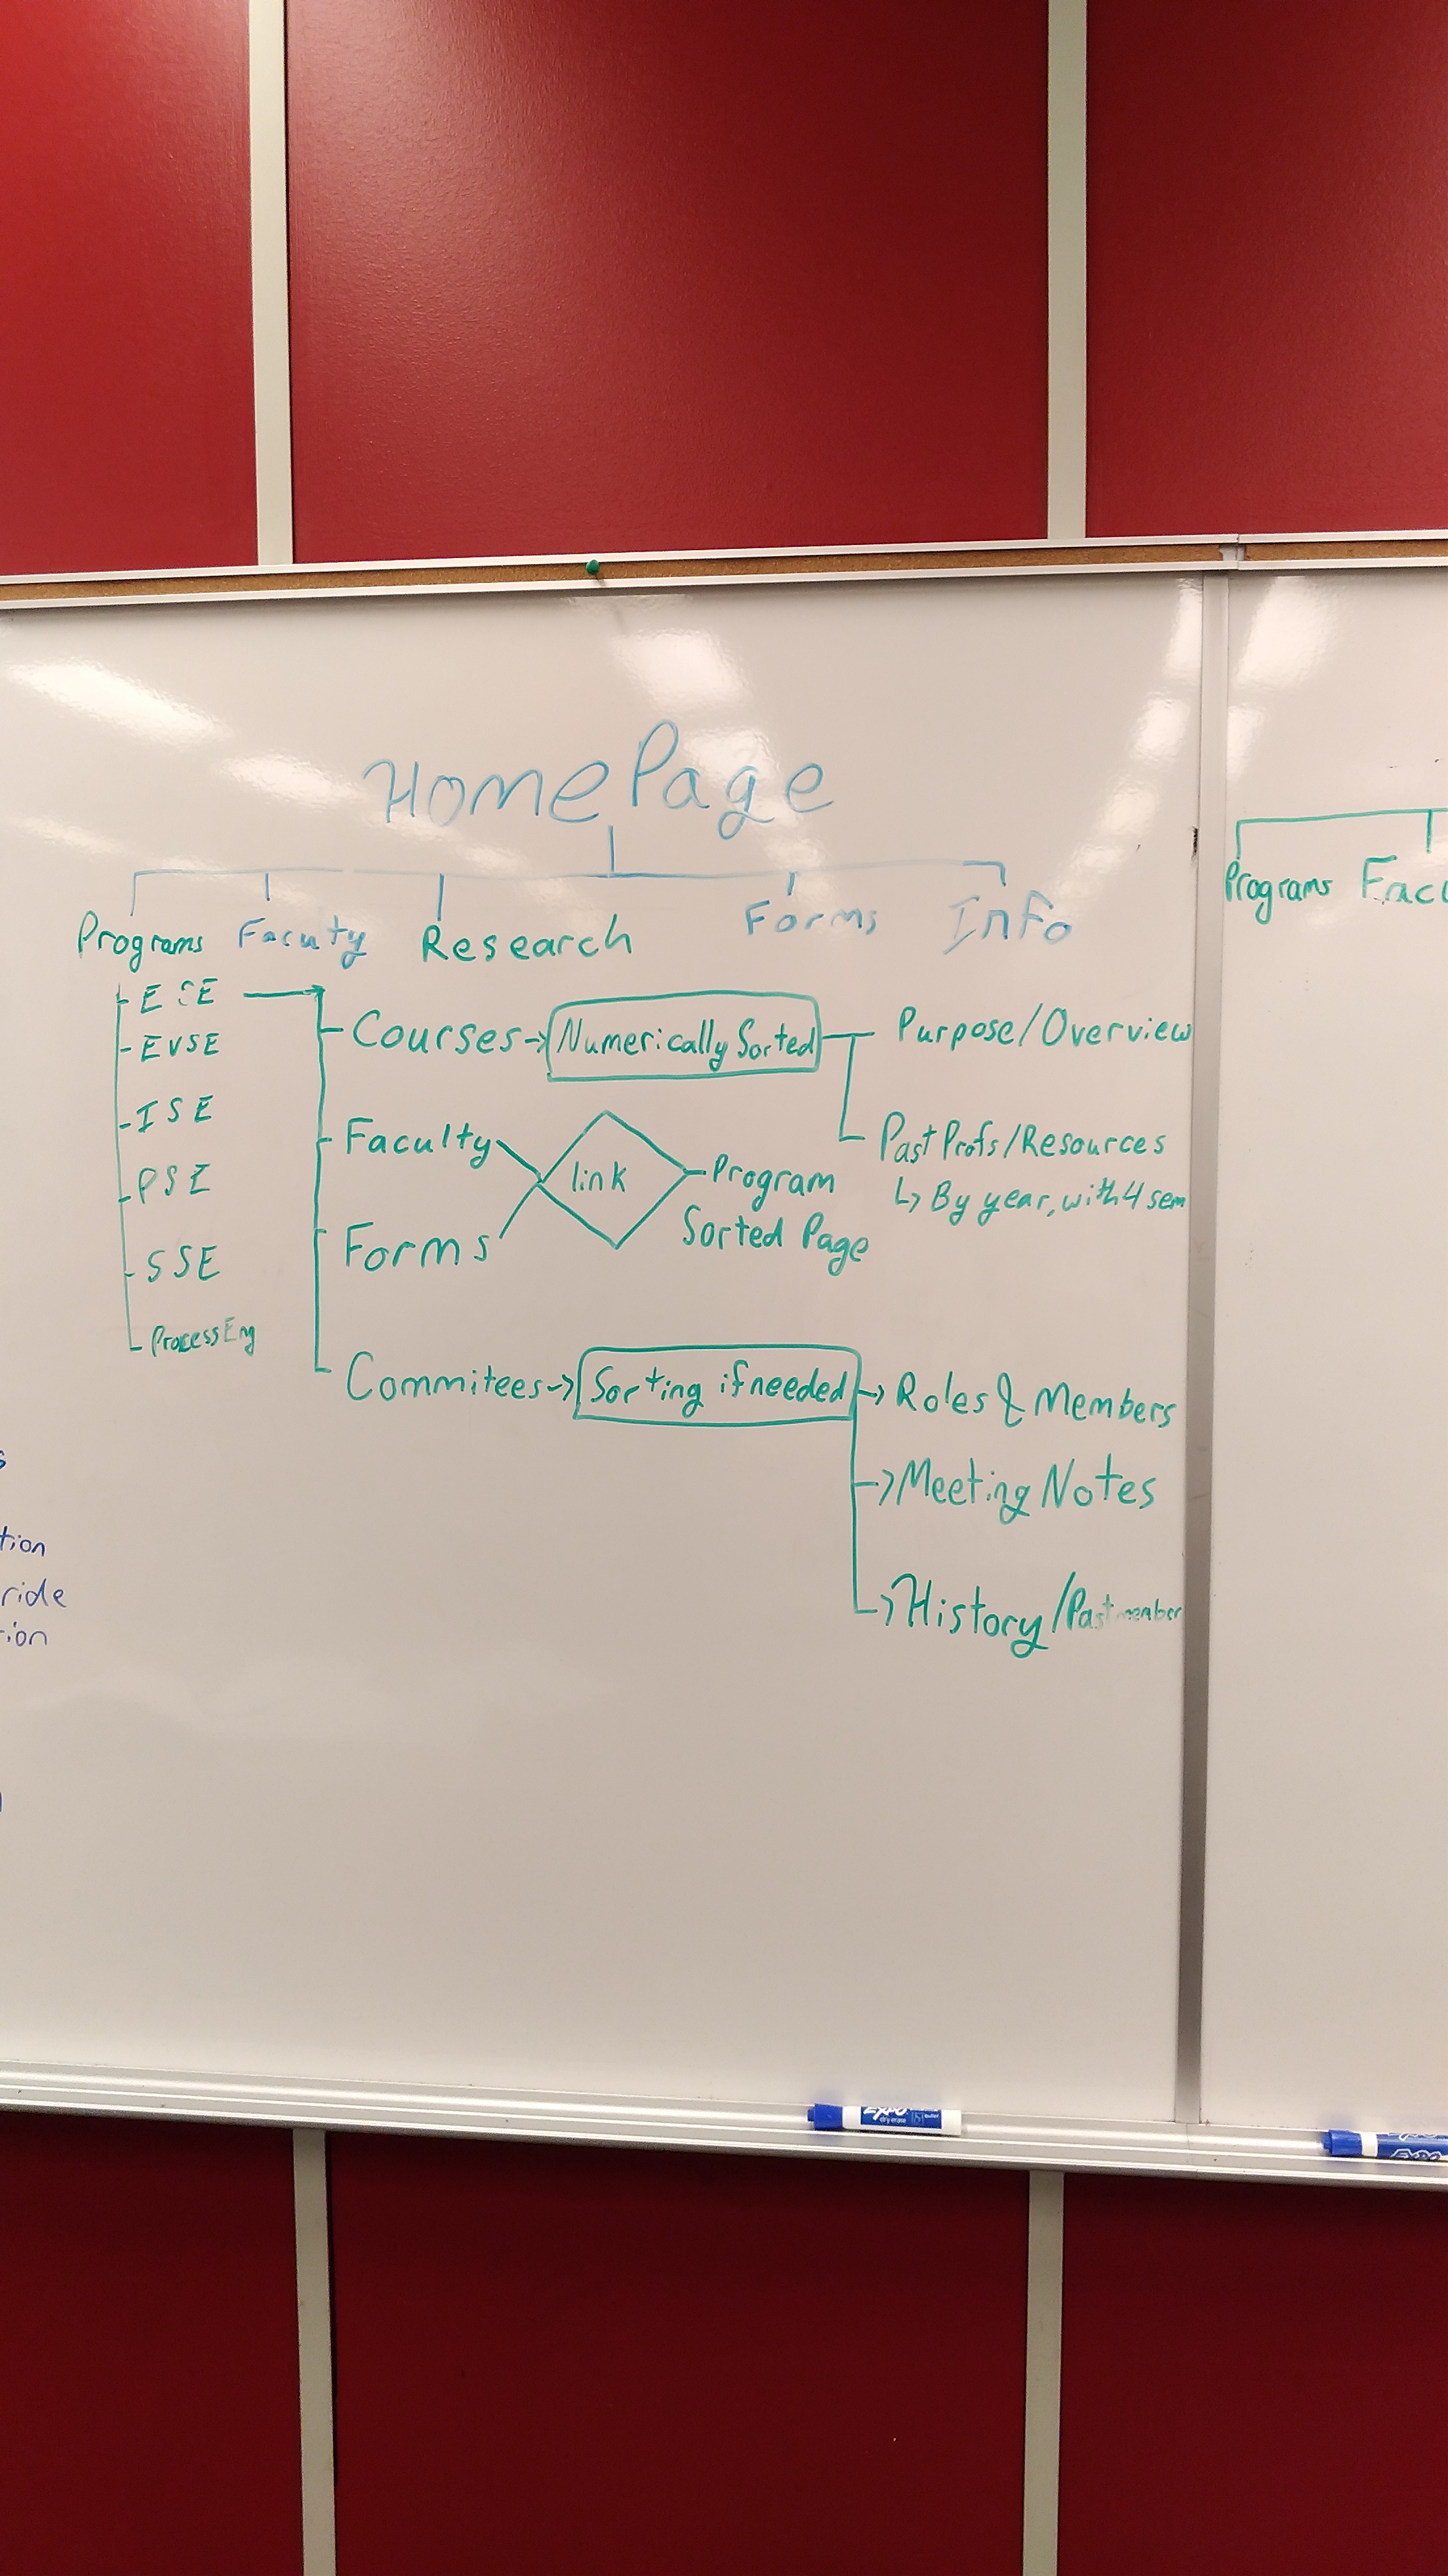 HomePage
Programs Facuty Research Forms Info
ESE
EVSE
ISE
PSE
SSE
ProcessEng
Courses -> Numerically Sorted Purpose/Overview
Past Profs/Resources
↳ By year, with 4 sem
Faculty
link
Program
Sorted Page
Forms
Commitees -> Sorting if needed -> Roles & Members
-> Meeting Notes
-> History/Past member
tion
ride
ion
Programs Facu
EXPO
dry erase
EXPO